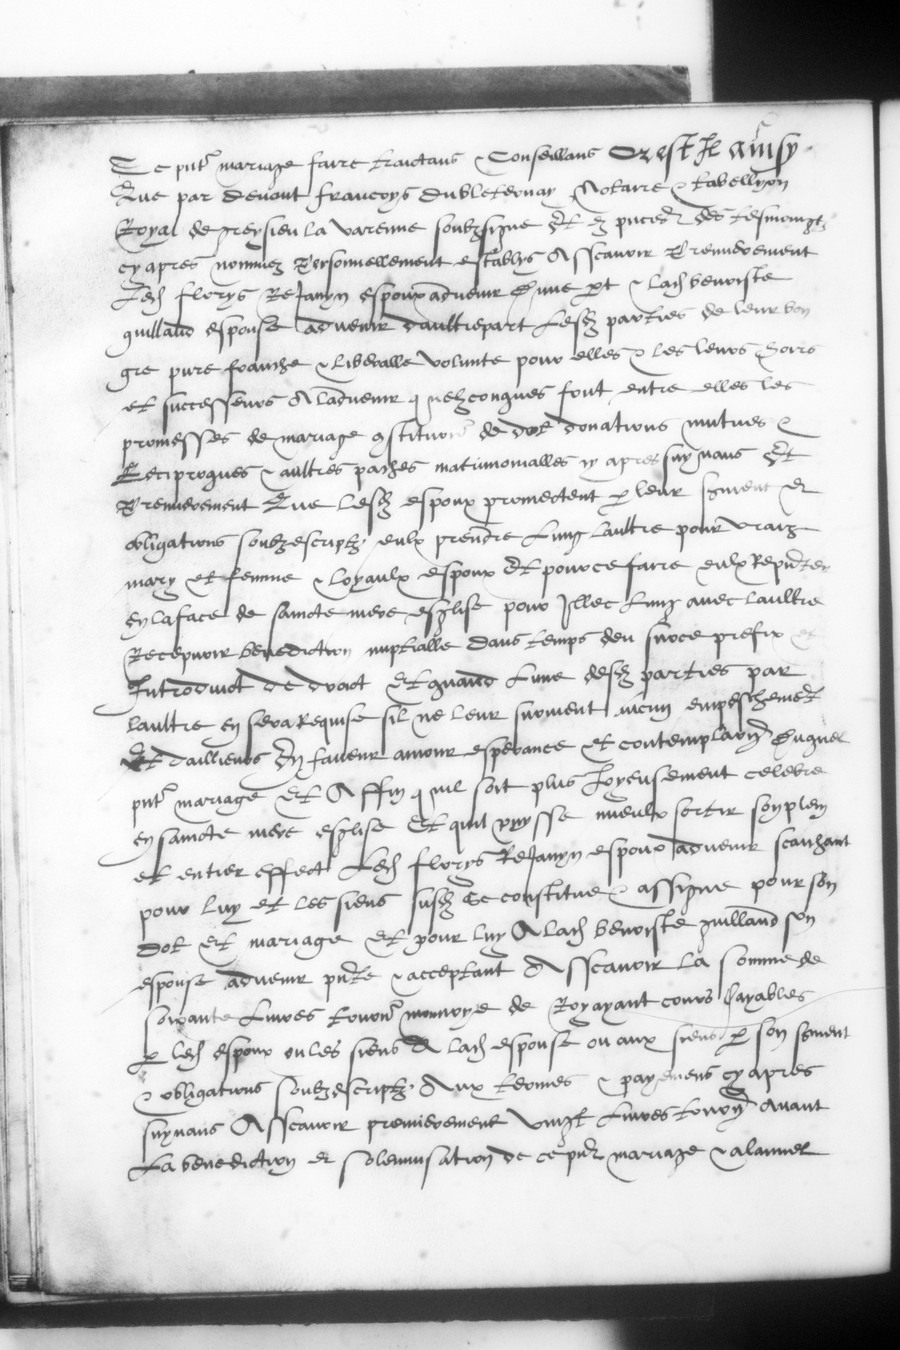 Ce pnt mariage faire traictans & Conseillans Or est il ainsy
Que par devant francoys Dubletternay Notaire & tabellyon
Royal de greysieu la Varenne soubzsigne Et en pnce des tesmoingtz
cy apres nommez Personnellement establys Assavoir Premierement
Led florys Rejanyn espoux advenir d'une pt & lad benoiste
guilland espouse advenir daultrepart Lesd parties de leur bon
gre pure franche & liberalle volunte pour elles & les leurs hoirs
et successeurs A ladvenir quelzconques font entre elles les
promesses de mariage constitution de dot donations mutues &
Reciproques & aultres paches matrimonialles cy apres suyvans Et
Premierement Que lesd espoux promectent p leur sment et
obligations soubzescriptz eulx prendre Lung laultre pour vraiz
mary et femme & Loyaulx espoux Et pour ce faire eulx Repnter
En la face de saincte mere esglise pour Illec Lung avec laultre
Recepvoir benediction nuptialle Dans temps deu sur ce prefix et
Introduict de droict Et quand Lune desd parties par
laultre en sera Requise sil ne leur survient aucun empeschement
Et dailleurs En faveur amour esperance et contemplaon duquel
pnt mariage Et Affin quil soit plus Joyeusement celebre
en saincte mere esglise Et quil puysse mieulx sortir son plein
et entier effect Led florys Rejanyn espoux advenir scaichant
pour luy et les siens susd Ce constitue & assigne pour son
dot et mariage et pour luy A lad benoiste guilland son
espouse advenir pnte & acceptant Assavoir la somme de
soixante Livres tournr monnoye de Roy ayant cours payables
p led espoux ou les siens A lad espouse ou aux siens p son sment
& obligations soubzescriptz Aux termes & payemens cy apres
suyvans Assavoir premierement vingt Livres tourn Avant
La benediction et solemnisation de ce pnt mariage & alannel